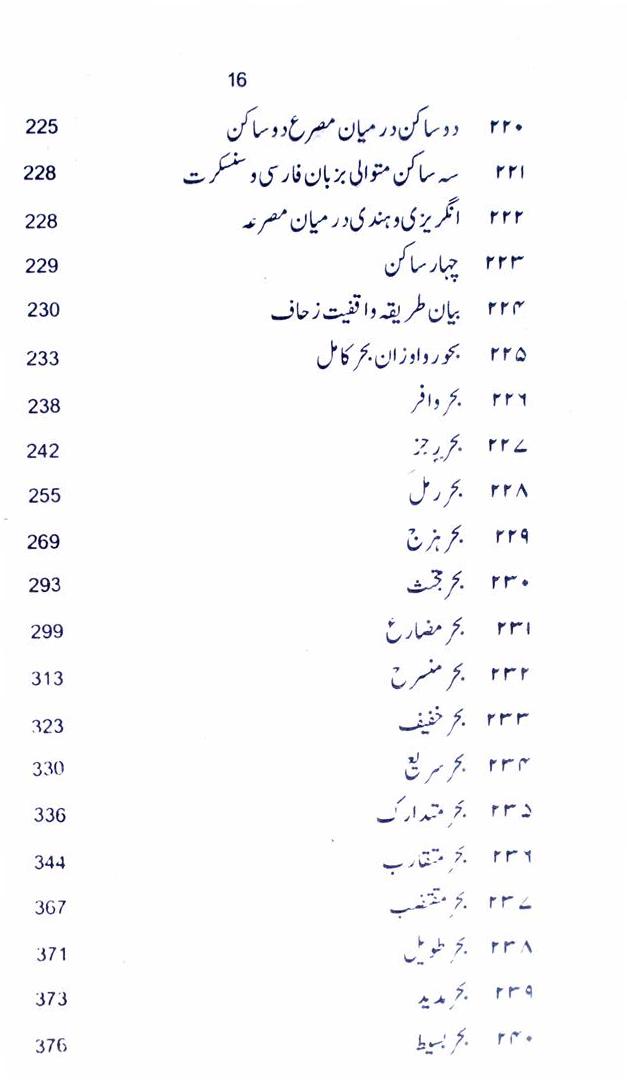 16
۲۲۰ دو ساکن درمیان مصرع دو ساکن 225
۲۲۱ سہ ساکن متوالی بزبان فارسی و سنسکرت 228
۲۲۲ انگریزی و ہندی درمیان مصرعہ 228
۲۲۳ چہار ساکن 229
۲۲۴ بیان طریقہ واقفیت زحاف 230
۲۲۵ بحور و اوزان بحر کامل 233
۲۲۶ بحر وافر 238
۲۲۷ بحر رجز 242
۲۲۸ بحر رمل 255
۲۲۹ بحر ہزج 269
۲۳۰ بحر مجتث 293
۲۳۱ بحر مضارع 299
۲۳۲ بحر منسرح 313
۲۳۳ بحر خفیف 323
۲۳۴ بحر سریع 330
۲۳۵ بحر متدارک 336
۲۳۶ بحر متقارب 344
۲۳۷ بحر مقتضب 367
۲۳۸ بحر طویل 371
۲۳۹ بحر مدید 373
۲۴۰ بحر بسیط 376